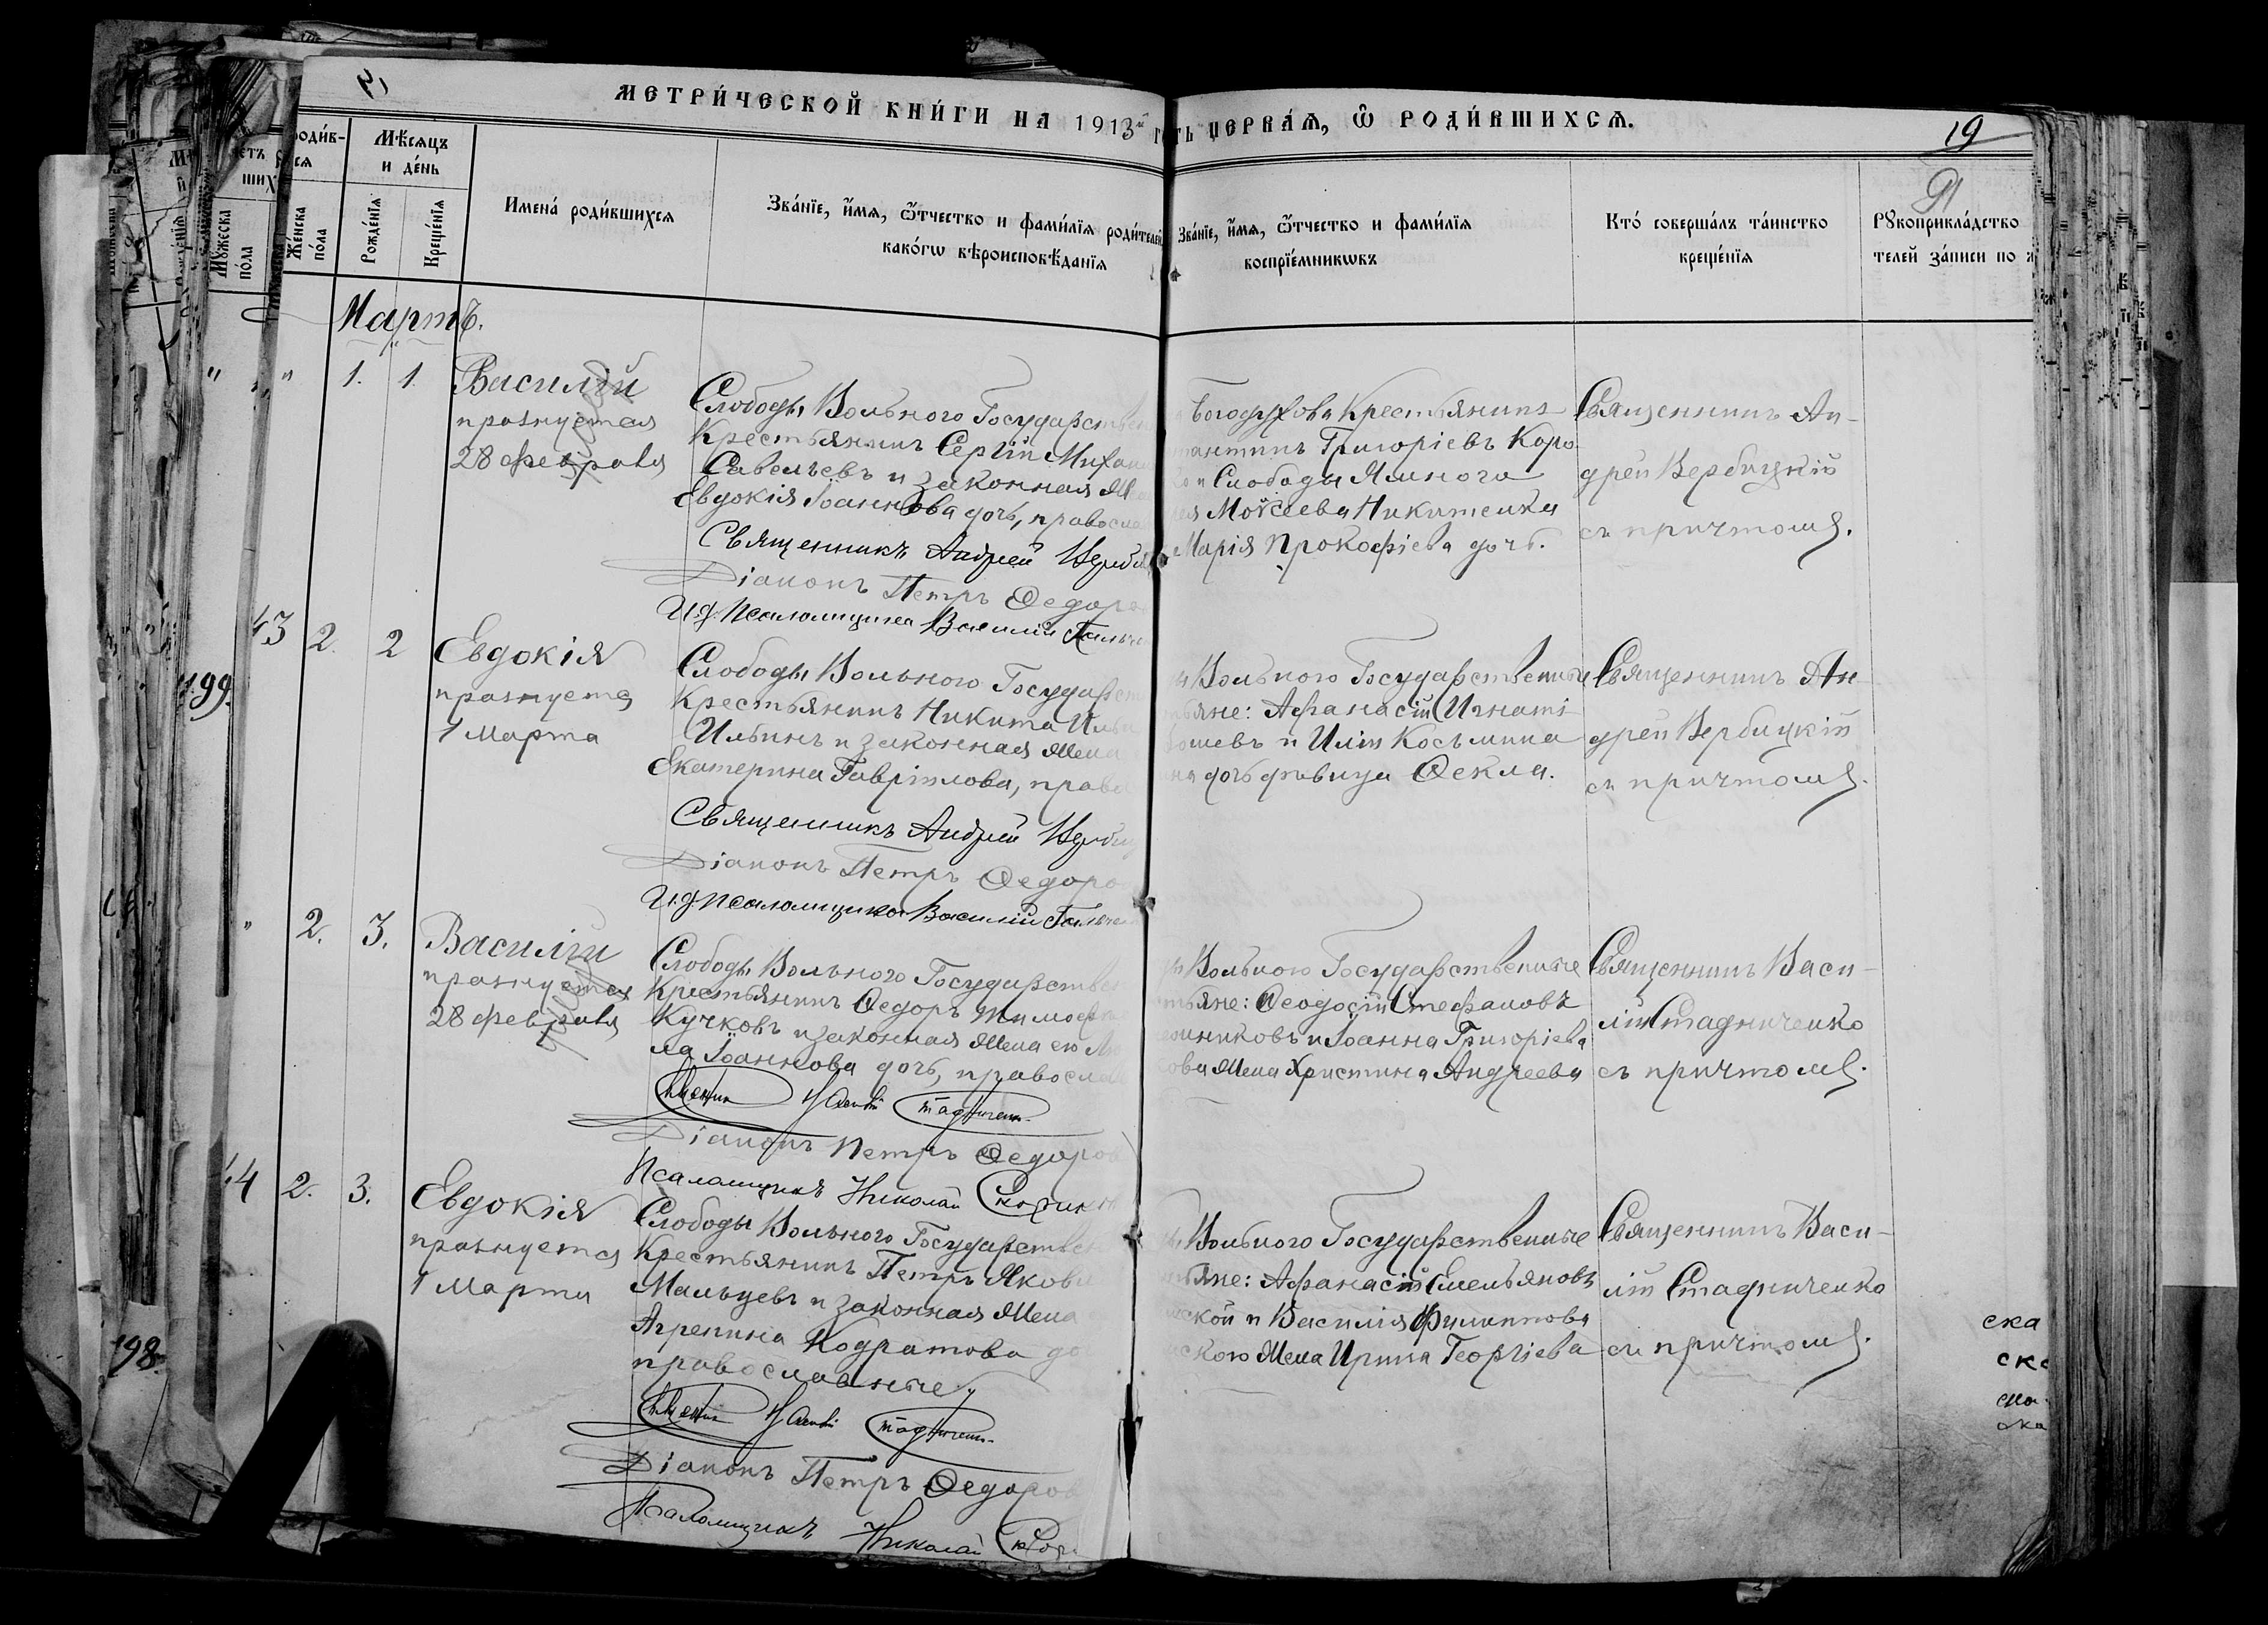 МЕТРИ́ЧЕСКОЙ КНИ́ГИ НА 1913й
ПЕРВА́Я, Ѡ РОДИ́ВШИХСЯ.
19
роди́в-
ся
Мѣ́сяцъ
и де́нь
Му́жеска
по́ла
Же́нска
по́ла
Рожде́нїя
Креще́нїя
Имена́ роди́вшихся
Зва́нїе, и́мя, ѻ҆́тчество и фами́лїя роди́телей
како́гѡ вѣроисповѣ́данїя
Зва́нїе, и́мя, ѻ҆́тчество и фами́лїя
воспрїе́мникѡвъ
Кто́ соверша́лъ та́инство
креще́нїя
Рꙋкоприкла́дство
телей за́писи по
Мартъ.
" " 1. 1.
Василій
празнуется
28 февраля
Слободы Вольного Государствен
Крестьянинъ Сергій Михаи
Савельевъ и законная
Евдокія Іоаннова дочь, правосла
Священникъ Андрей Верби
Діаконъ Петръ Ѳедоро
И.д. Псаломщика Василій
Богодухова Крестьянинъ
тантинъ Григоріевъ Коро
и Слободы Ямного
Моѵсеева Никитенка
Марія Прокофіева дочь.
Священникъ Ан-
дрей Вербицкій
съ причтомъ.
43 2. 2
Евдокія
празнуется
1 Марта
Слободы Вольного Государст
Крестьянинъ Никита Ильи
Ильинъ и законная жена
Екатерина Гавріилова, право
Священникъ Андрей Верби
Діаконъ Петръ Ѳедоро
И.д. Псаломщика Василій
Вольного Государственные
тьяне: Афанасій Игнаті
и Илія Косьмина
дочь дѣвица Ѳекла.
Священникъ Ан-
дрей Вербицкій
съ причтомъ.
" 2. 3.
Василій
празнуется
28 февраля
Слободы Вольного Государствен
Крестьянинъ Ѳедоръ Тимофе
Кучковъ и законная жена его
ла Іоаннова дочь, правосла
Діаконъ Петръ Ѳедоров
Псаломщикъ Николай
Вольного Государственные
стьяне: Ѳеодосій Стефановъ
никовъ и Іоанна Григоріева
кова жена Христина Андреева
Священникъ Васи-
лій Стадниченко
съ причтомъ.
44 2. 3.
Евдокія
празнуется
1 Марта
Слободы Вольного Государствен
Крестьянинъ Петръ Яковл
Мальцевъ и законная жена
Агрепина Кодратова до
православные.
Діаконъ Петръ Ѳедоров
Псаломщикъ Николай
Вольного Государственные
тьяне: Афанасій Емельяновъ
ской и Василія Филиппова
ского жена Ирина Георгіева
Священникъ Васи-
лій Стадниченко
съ причтомъ.
99.
98.
ска